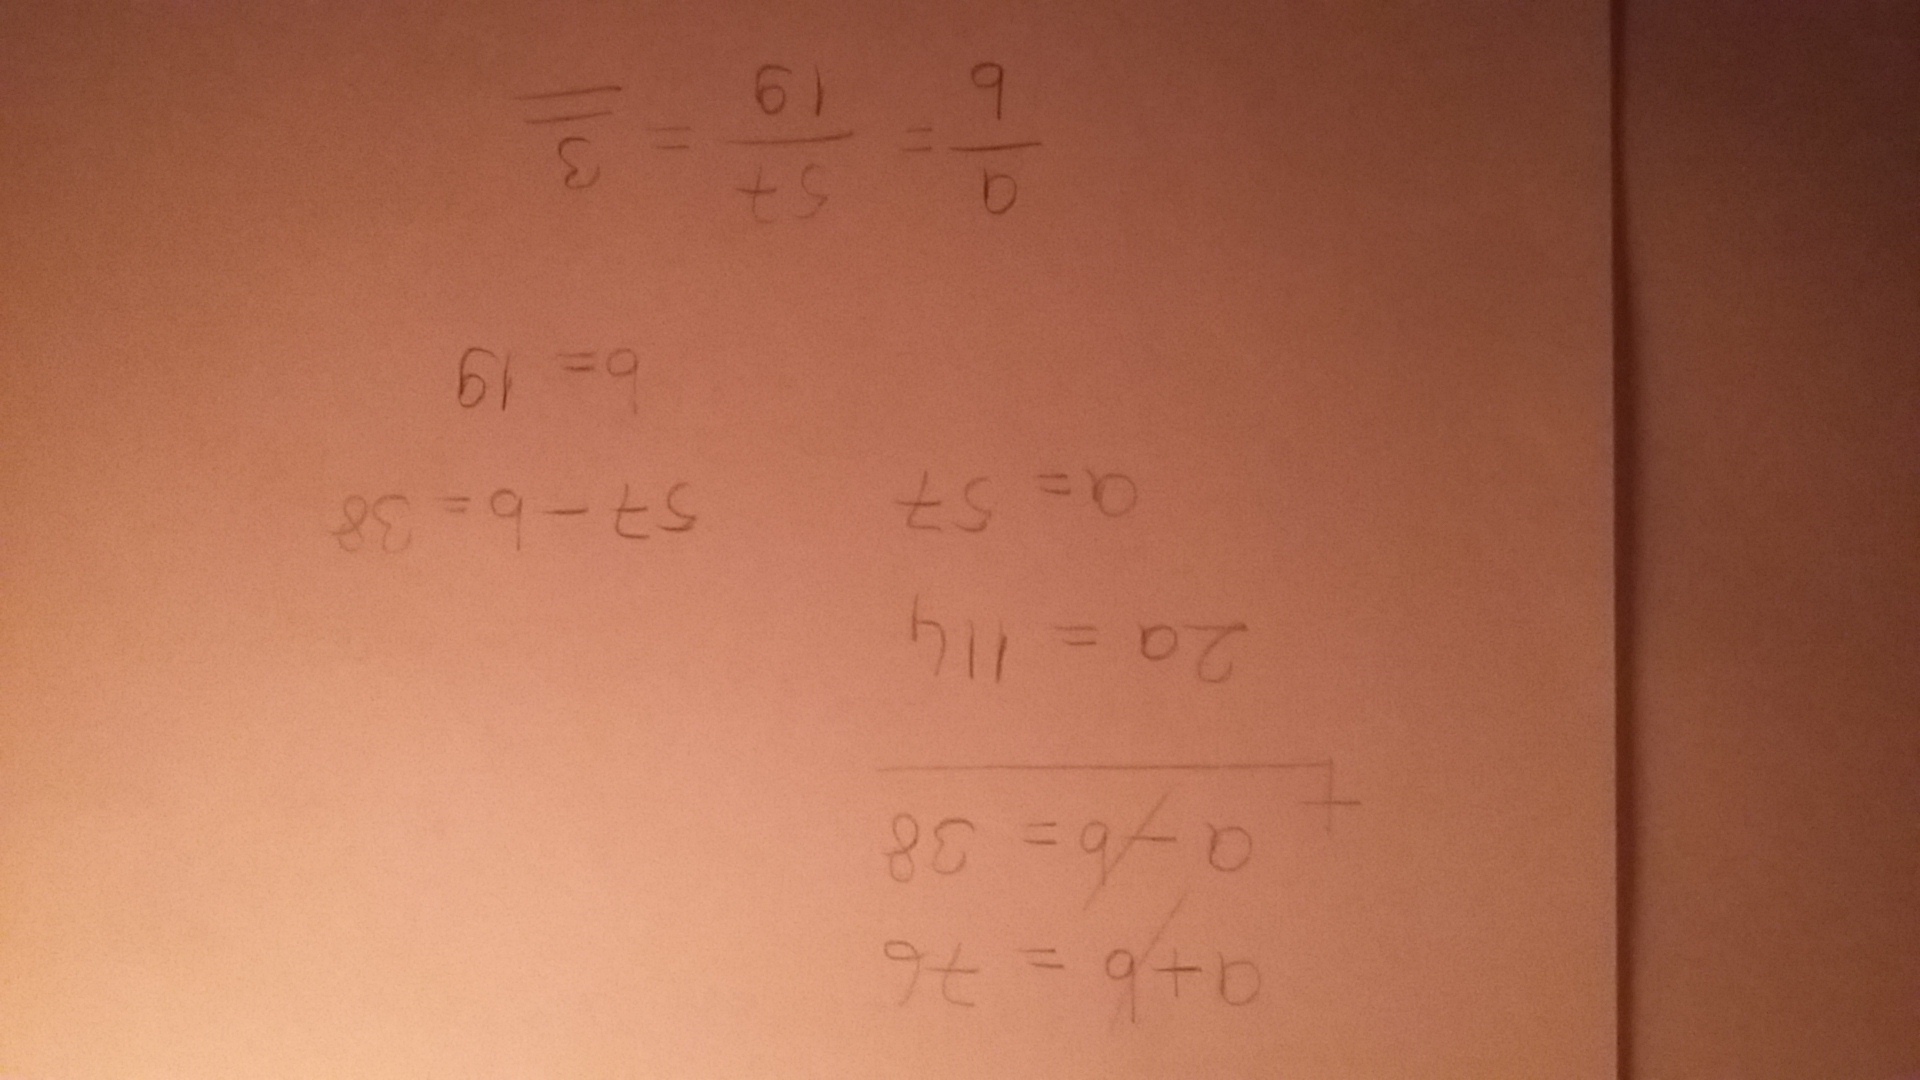 a+b = 76
a-b = 38
+
2a = 114
a = 57
57 - b = 38
b = 19
a/b = 57/19 = 3